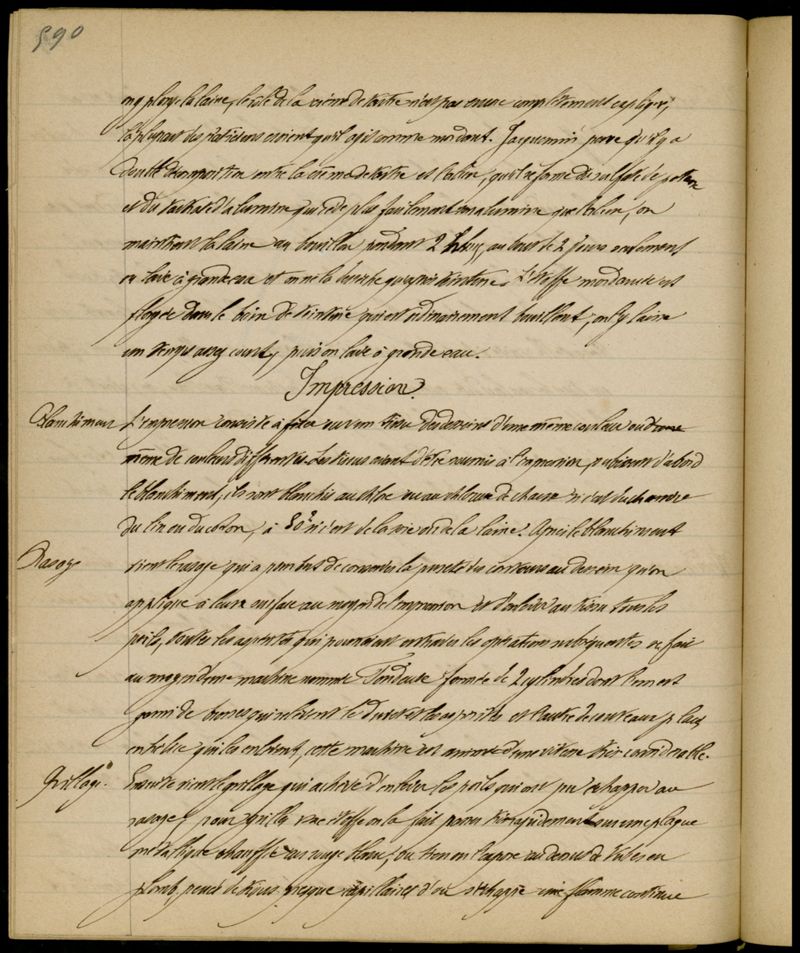 590
on y plonge la laine, le rôle de la crème de tartre n'est pas encore complètement expliqué,
la plupart des praticiens croient qu'il agit comme mordant. Jacquemin pense qu'il y a
double décomposition entre la crème de tartre et l'alun, qu'il se forme du sulfate de potasse
et du tartrate d'alumine qui cède plus facilement son alumine que l'alun, on
maintient la laine au bouillon pendant 2 h, au bout de 2 jours seulement
on lave à grande eau et on ne la sèche qu'après teinture. L'étoffe mordancée est
plongée dans le bain de teinture qui est ordinairement bouillant, on l'y laisse
un temps assez court, puis on lave à grande eau.
Impression.
Blanchiment L'impression consiste à fixer sur un tissu des dessins d'une même couleur ou d'une
même de couleurs différentes. Les tissus avant d'être soumis à l'impression, subissent d'abord
le blanchiment, ils sont blanchis au chlore ou au chlorure de chaux si c'est du chanvre
du lin ou du coton, à SO² si c'est de la soie ou de la laine. Après le blanchiment
Rasage vient le rasage qui a pour but de conserver la pureté des contours au dessin qu'on
applique à leur surface au moyen de l'impression et d'enlever au tissu tous les
poils, toutes les aspérités qui pourraient entraver les opérations subséquentes se fait
au moyen d'une machine nommée Tondeuse formée de 2 cylindres dont l'un est
garni de brosses qui enlèvent le duvet et les aspérités et l'autre de couteaux placés
en hélice qui les enlèvent, cette machine est animée d'une vitesse très considérable.
Grillage. Ensuite vient le grillage qui achève d'enlever les poils qui ont pu échapper au
rasage, pour griller une étoffe on la fait passer très rapidement sur une plaque
métallique chauffée au rouge blanc, ou bien on l'expose au dessus de tubes en
plomb, percés de trous presque capillaires d'où s'échappe une flamme continue